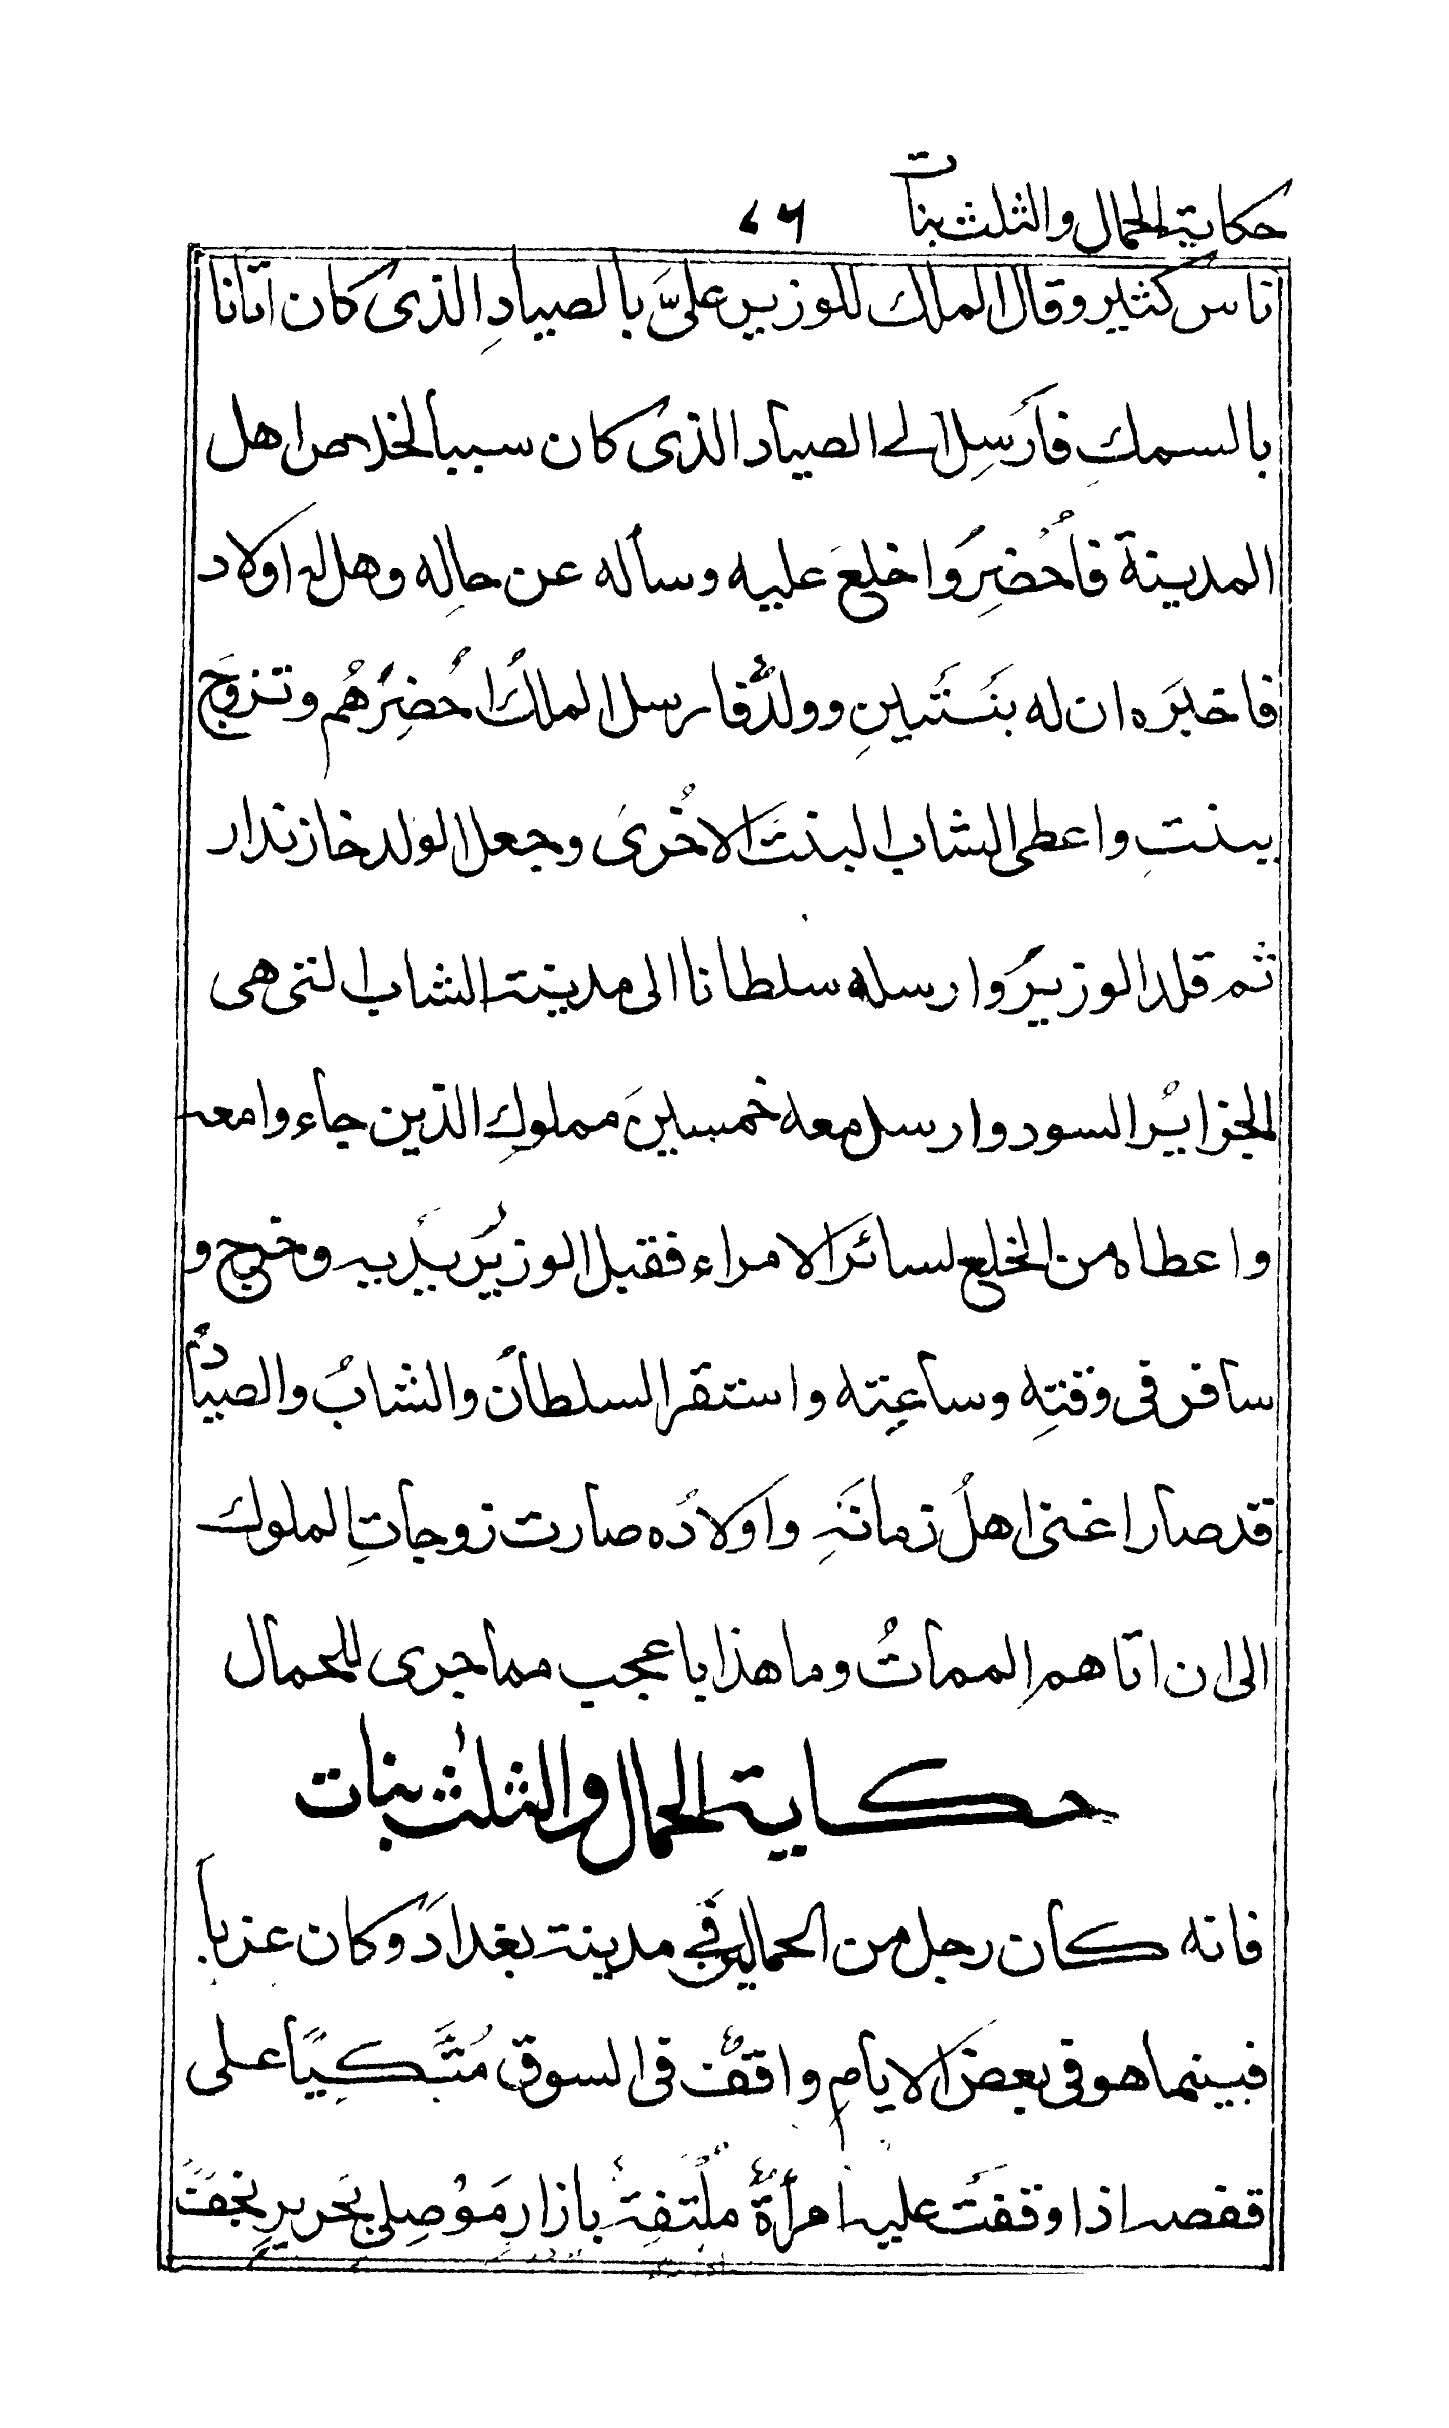 حكاية الحمال والثلث بنات ٧٦
ناس كثير وقال الملك للوزير عليَّ بالصيادِ الذى كان اتانا
بالسمكِ فأرسِل الى الصياد الذى كان سبباً لخلاص اهل
المدينة فاُحضِرَ واخلعَ عليه وسأله عن حالِه وهل له اولاد
فاخبَره ان له بَنَتَينِ وولدٌ فارسل الملكُ احُضِرَهُم وتزوَج
ببنتٍ واعطى الشاب البنتَ الاخُرىَ وجعل الولد خازندار
ثم قلد الوزيرَ وارسله سلطانا الى مدينة الشاب التى هى
الجزايرُ السود وارسل معه خمسينَ مملوكِ الذين جاءوا معه
واعطاه من الخلع لسائرَ الامراء فقبل الوزيرُ يدَيه وخرج و
سافر فى وقتِه وساعِته واستقر السلطانُ والشابُ والصيادُ
قد صار اغنى اهلُ زمانَهِ واولادُه صارت زوجاتِ الملوك
الى ان اتاهم المماتُ وما هذا باعجب مما جرى للحمال
حكاية الحمال والثلث بنات
فانه كان رجل من الحمالين فَى مدينة بغدادَ وكان عزباً
فبينما هو فى بعضَ الايامِ واقفٌ فى السوق مُتَّكِيًا على
قفصه اذا وقفَت عليه امرأةٌ ملْتَفِةَ بازارِ مَوْصِلى بَحريرِ نجفَت